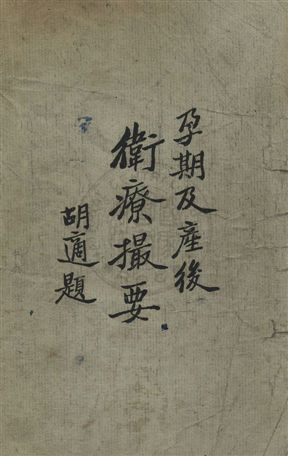 孕期及產後
衛療撮要
胡適題